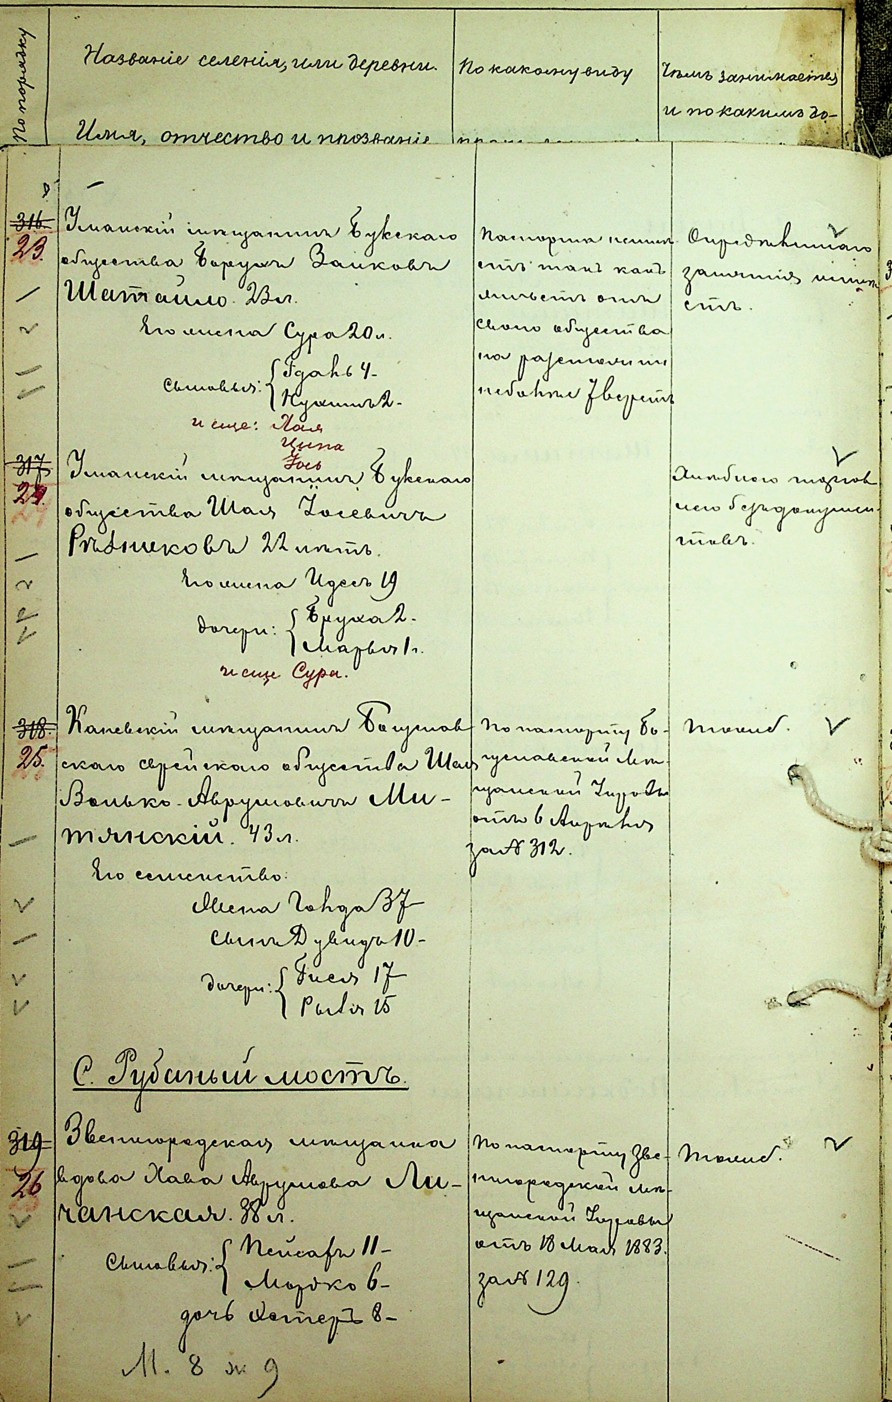 По порядку
Названіе селенія, или деревни.
Имя, отчество и прозваніе
По какому виду
Чѣмъ занимается
и по какимъ до-
316.
23.
Уманскій мѣщанинъ Букскаго
общества Борухъ Занковъ
Шатайло. 23 л.
Его жена Сура 20 л.
сыновья: Гдаль 4-
Нухимъ 2-
и еще: Хая
Ципа
Іось
Паспорта неимѣ-
етъ такъ какъ
живетъ отъ
своего общества
на разстояніи
небольше 7 верстъ
Опредѣленнаго
занятія неимѣ-
етъ.
317
24.
Уманскій мѣщанинъ Букскаго
общества Шая Іосевичъ
22 лѣтъ.
Его жена Идесъ 19
дочери: Бруха 2-
Марьяя 1 г.
и еще Сура.
Хлѣбною торгов-
лею бездокумен-
товъ.
318.
25.
Каневскій мѣщанинъ Богуслав
скаго еврейскаго общества Шая
Волько-Аврумовичъ Ми-
тянскій. 43 л.
Его семейство:
Жена Гольда 37-
сынъ Дувидъ 10-
дочери: Гися 17
Рывья 15
По паспорту Бо-
гуславской Мѣ-
щанской Управы
отъ 6 Апрѣля
за № 312.
тоже.
С. Рубаный мостъ.
319
26
Звенигородская мѣщанка
вдова Хава Аврумова Ли-
чанская. 38 л.
сыновья: Пейсахъ 11-
Мордко 6-
дочь Эстеръ 8-
По паспорту Зве-
нигородской мѣ-
щанской Управы
отъ 18 Мая 1883.
за № 129.
тоже.
М. 8 ж 9